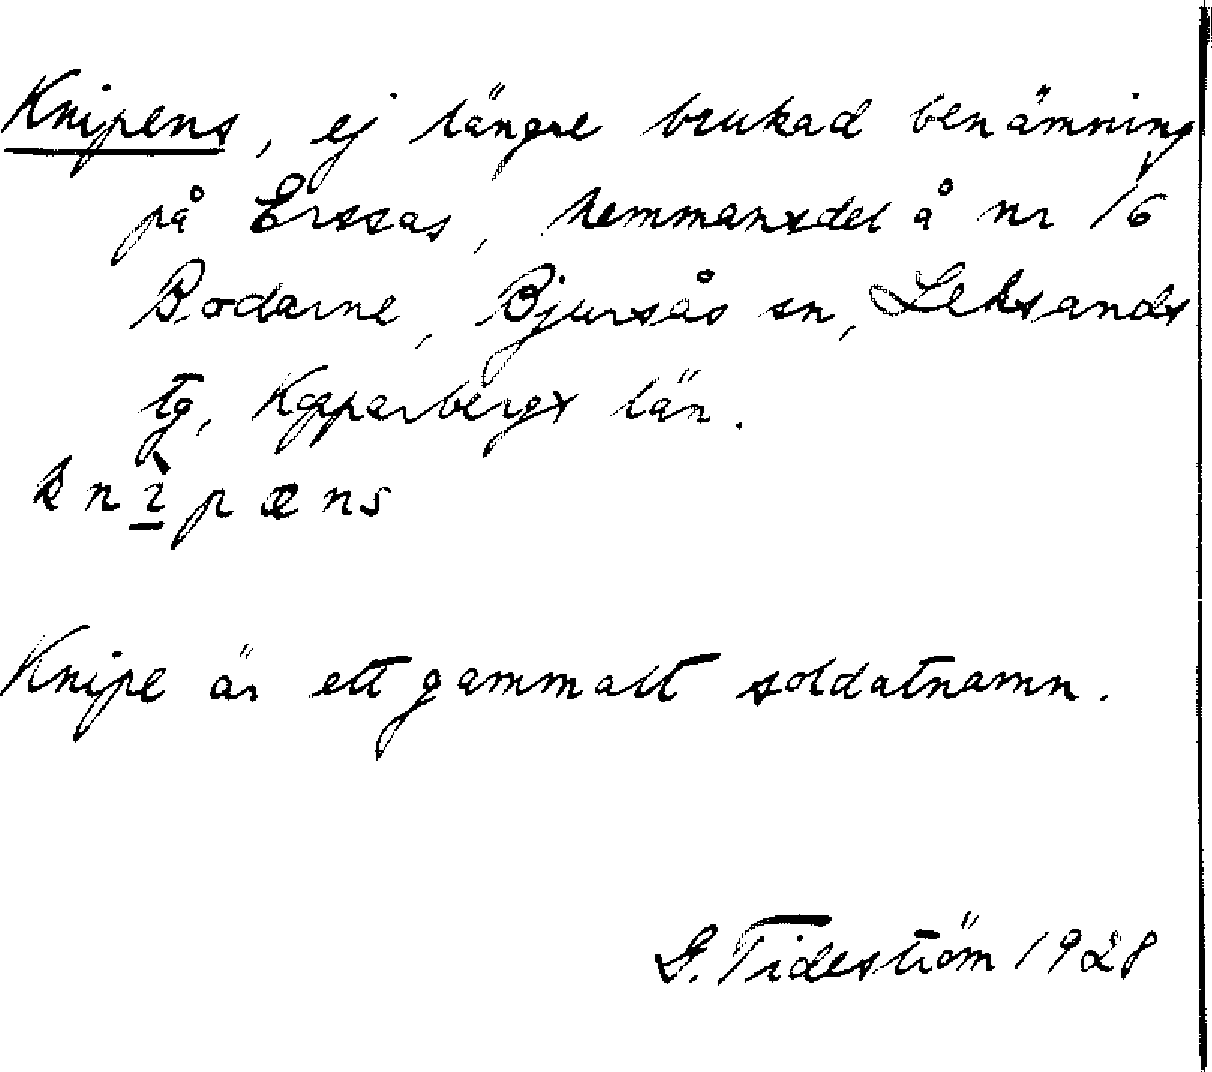 Knipens, ej längre brukad benämning
på Erssas, hemmansdel å nr 16
Bodarne, Bjursås sn, Leksands
tg, Kopparbergs län.
knìpæns
Knipe är ett gammalt soldatnamn.
G. Tideström 1928